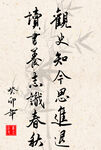 觀史知今思進退
讀書養志識春秋
癸卯年